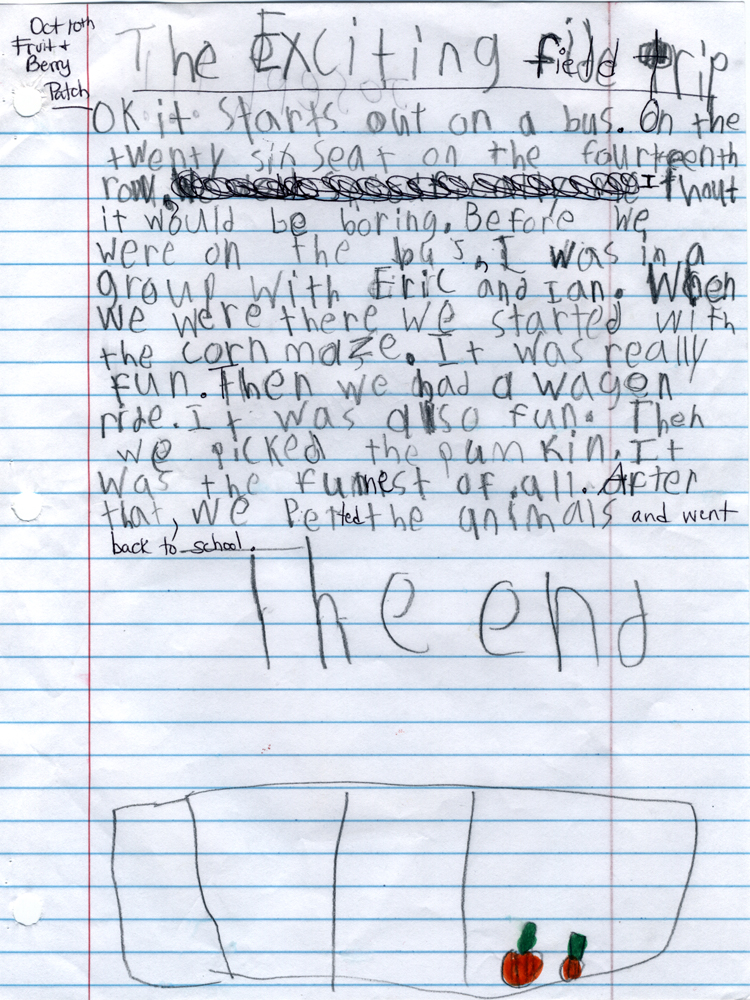 Oct 10th
Fruit +
Berry
Patch
The Exciting field trip
OK it starts out on a bus. On the
twenty six seat on the fourteenth
row. I thout
it would be boring. Before we
were on the bus, I was in a
group with Eric and Ian. When
we were there we started with
the corn maze. It was really
fun. Then we had a wagen
ride. It was also fun. Then
we picked the pumkin. It
was the funnest of all. After
that, we Petted the animals and went
back to school.
The end